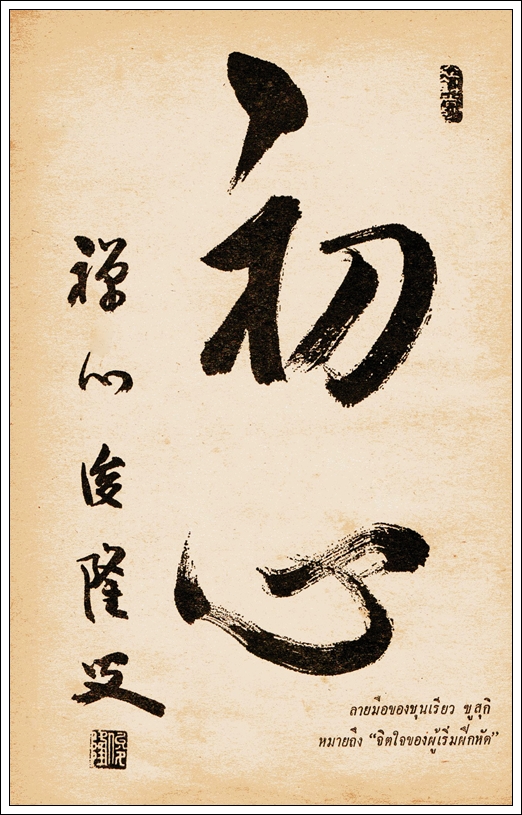 初心
禅心俊隆
ลายมือของชุนเรียว ซูสุกิ
หมายถึง “จิตใจของผู้เริ่มฝึกหัด”